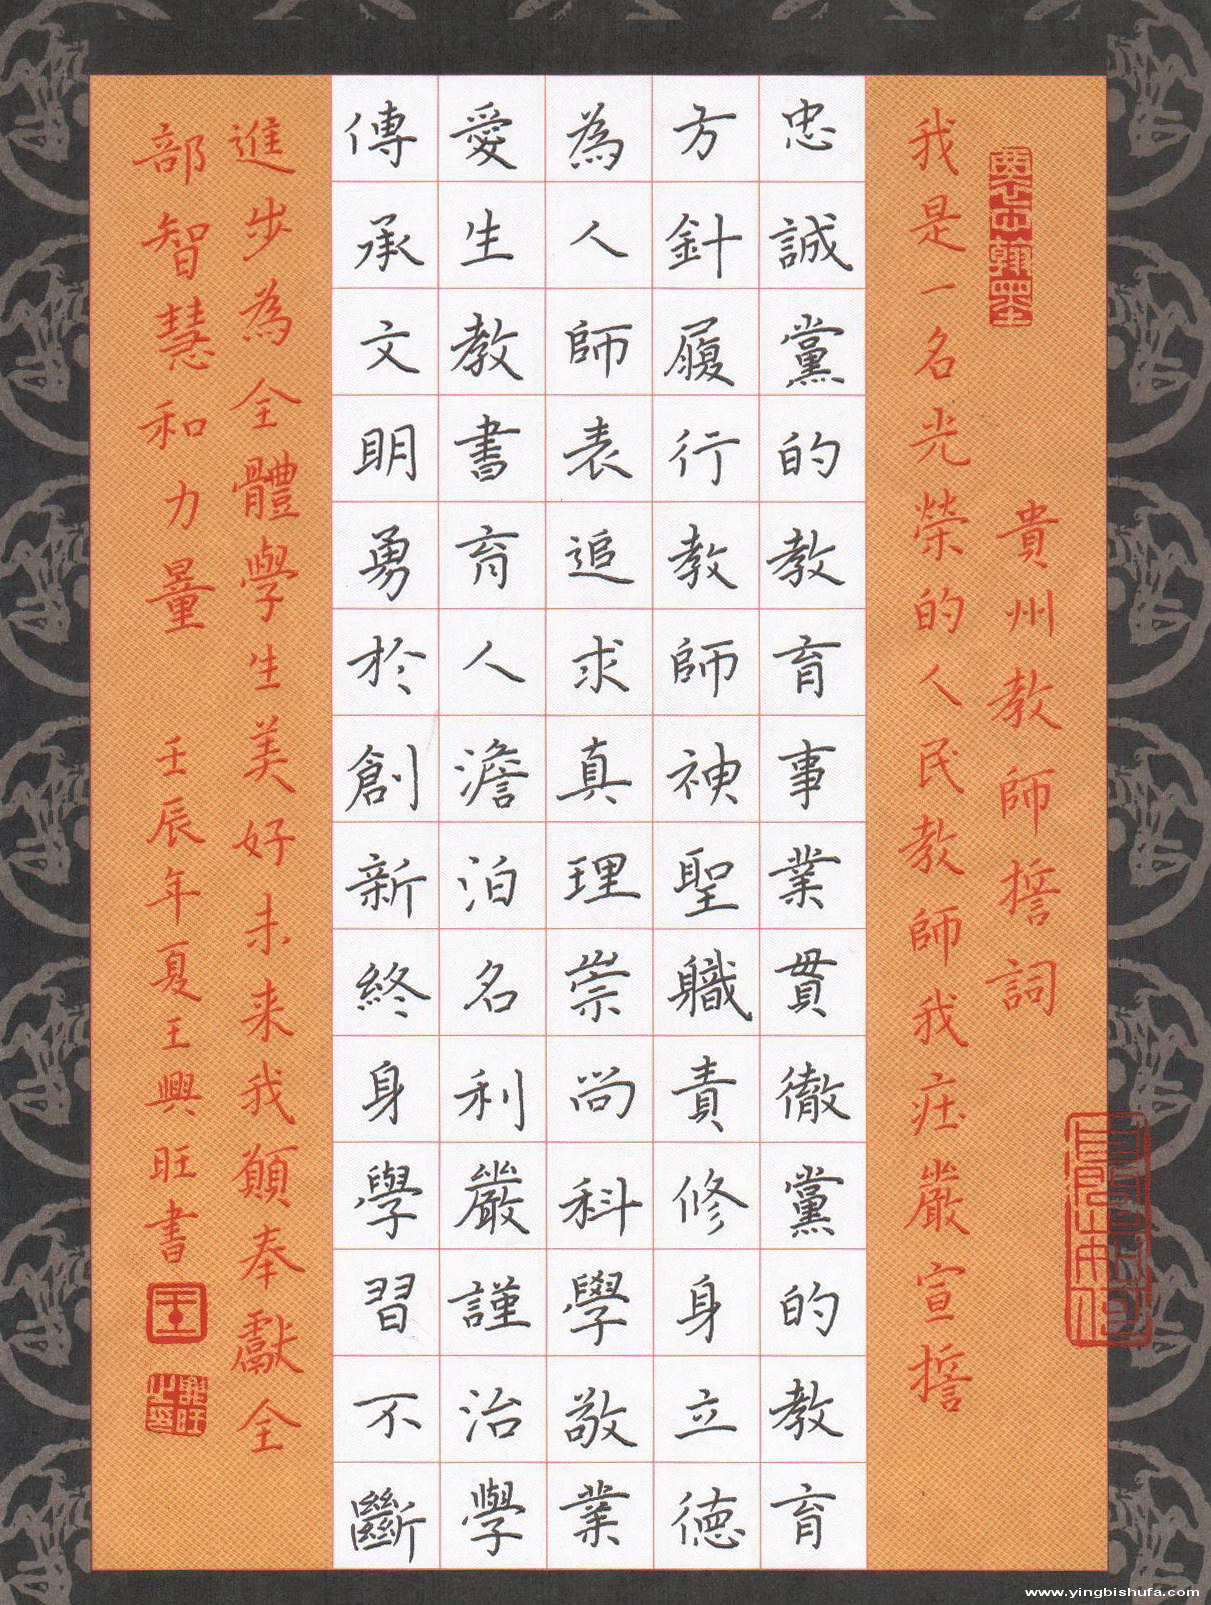 貴州教師誓詞
我是一名光榮的人民教師我莊嚴宣誓
忠誠黨的教育事業貫徹黨的教育
方針履行教師神聖職責修身立德
為人師表追求真理崇尚科學敬業
愛生教書育人澹泊名利嚴謹治學
傳承文明勇於創新終身學習不斷
進步為全體學生美好未来我願奉獻全
部智慧和力量 壬辰年夏王興旺書
王
興旺之印
www.yingbishufa.com